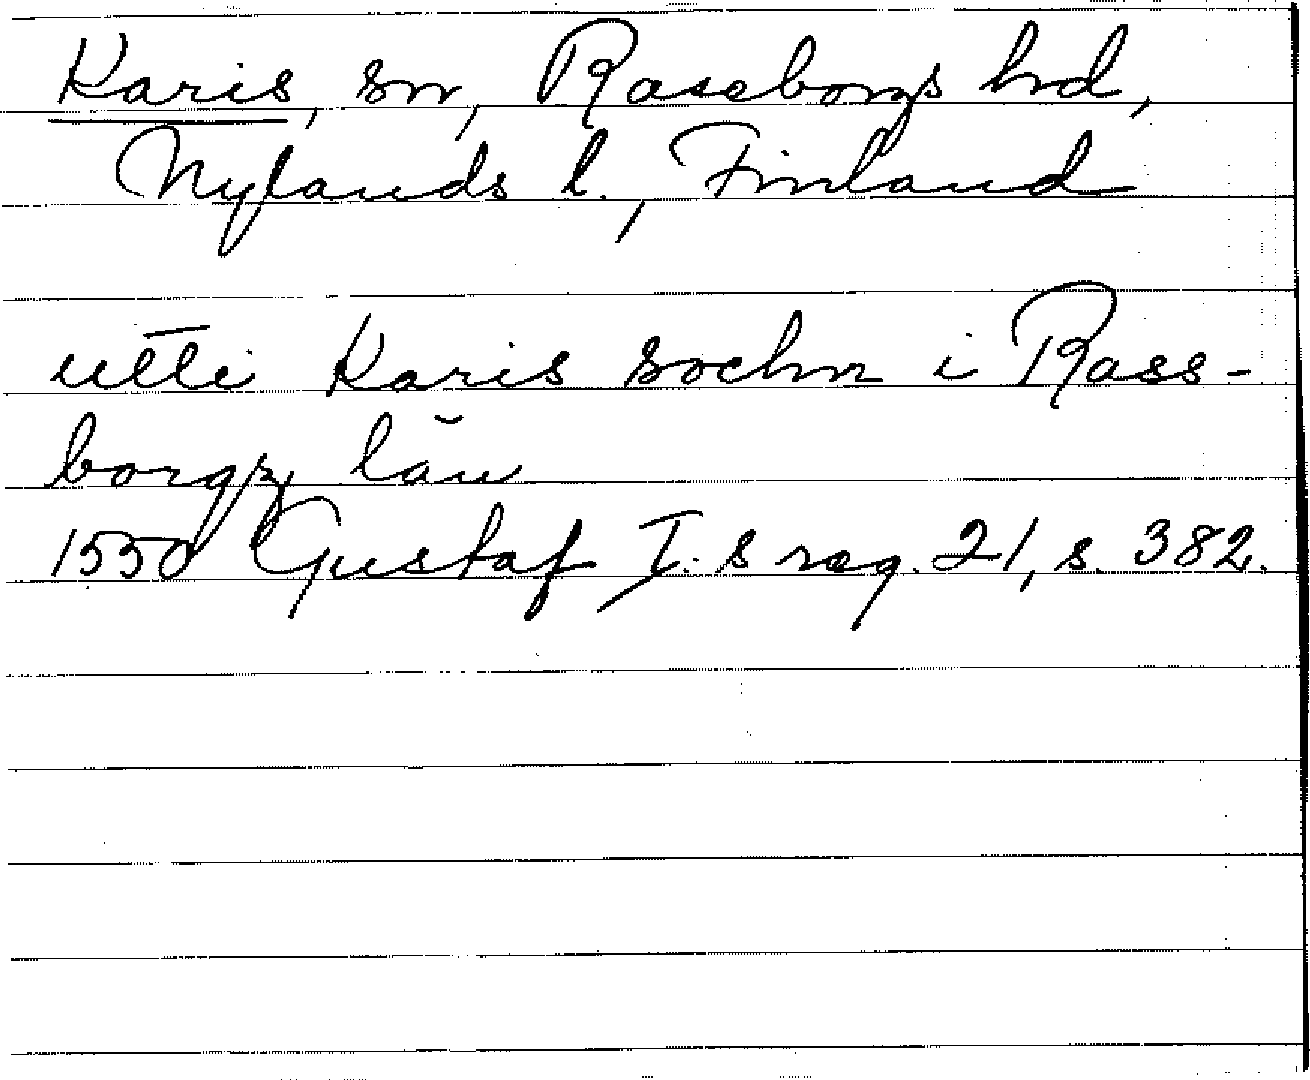 Karis, sn, Raseborgs hd,
Nylands l., Finland
utti Karis sochn i Rass-
borgz län
1550 Gustaf I:s reg. 21, s. 382.